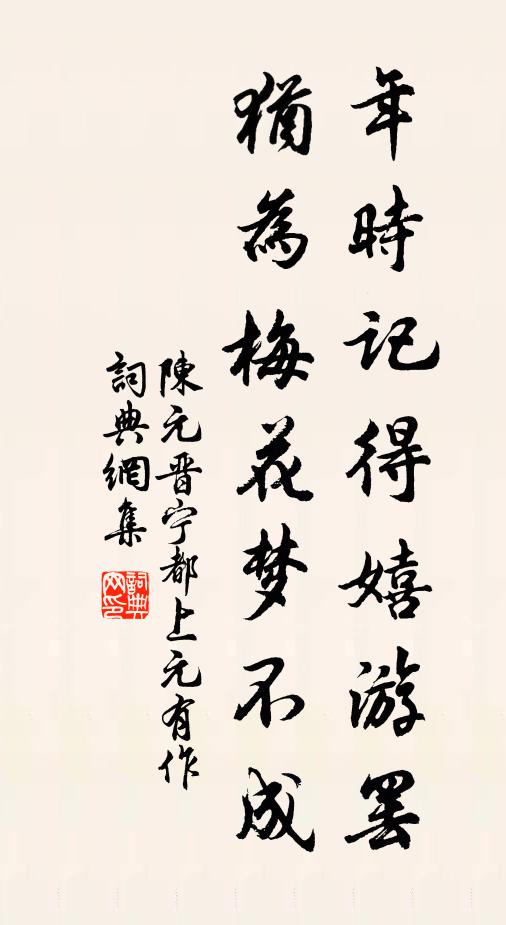 年時記得嬉游罢
猶為梅花梦不成
陳元晋宁都上元有作
詞典網集
詞典网印